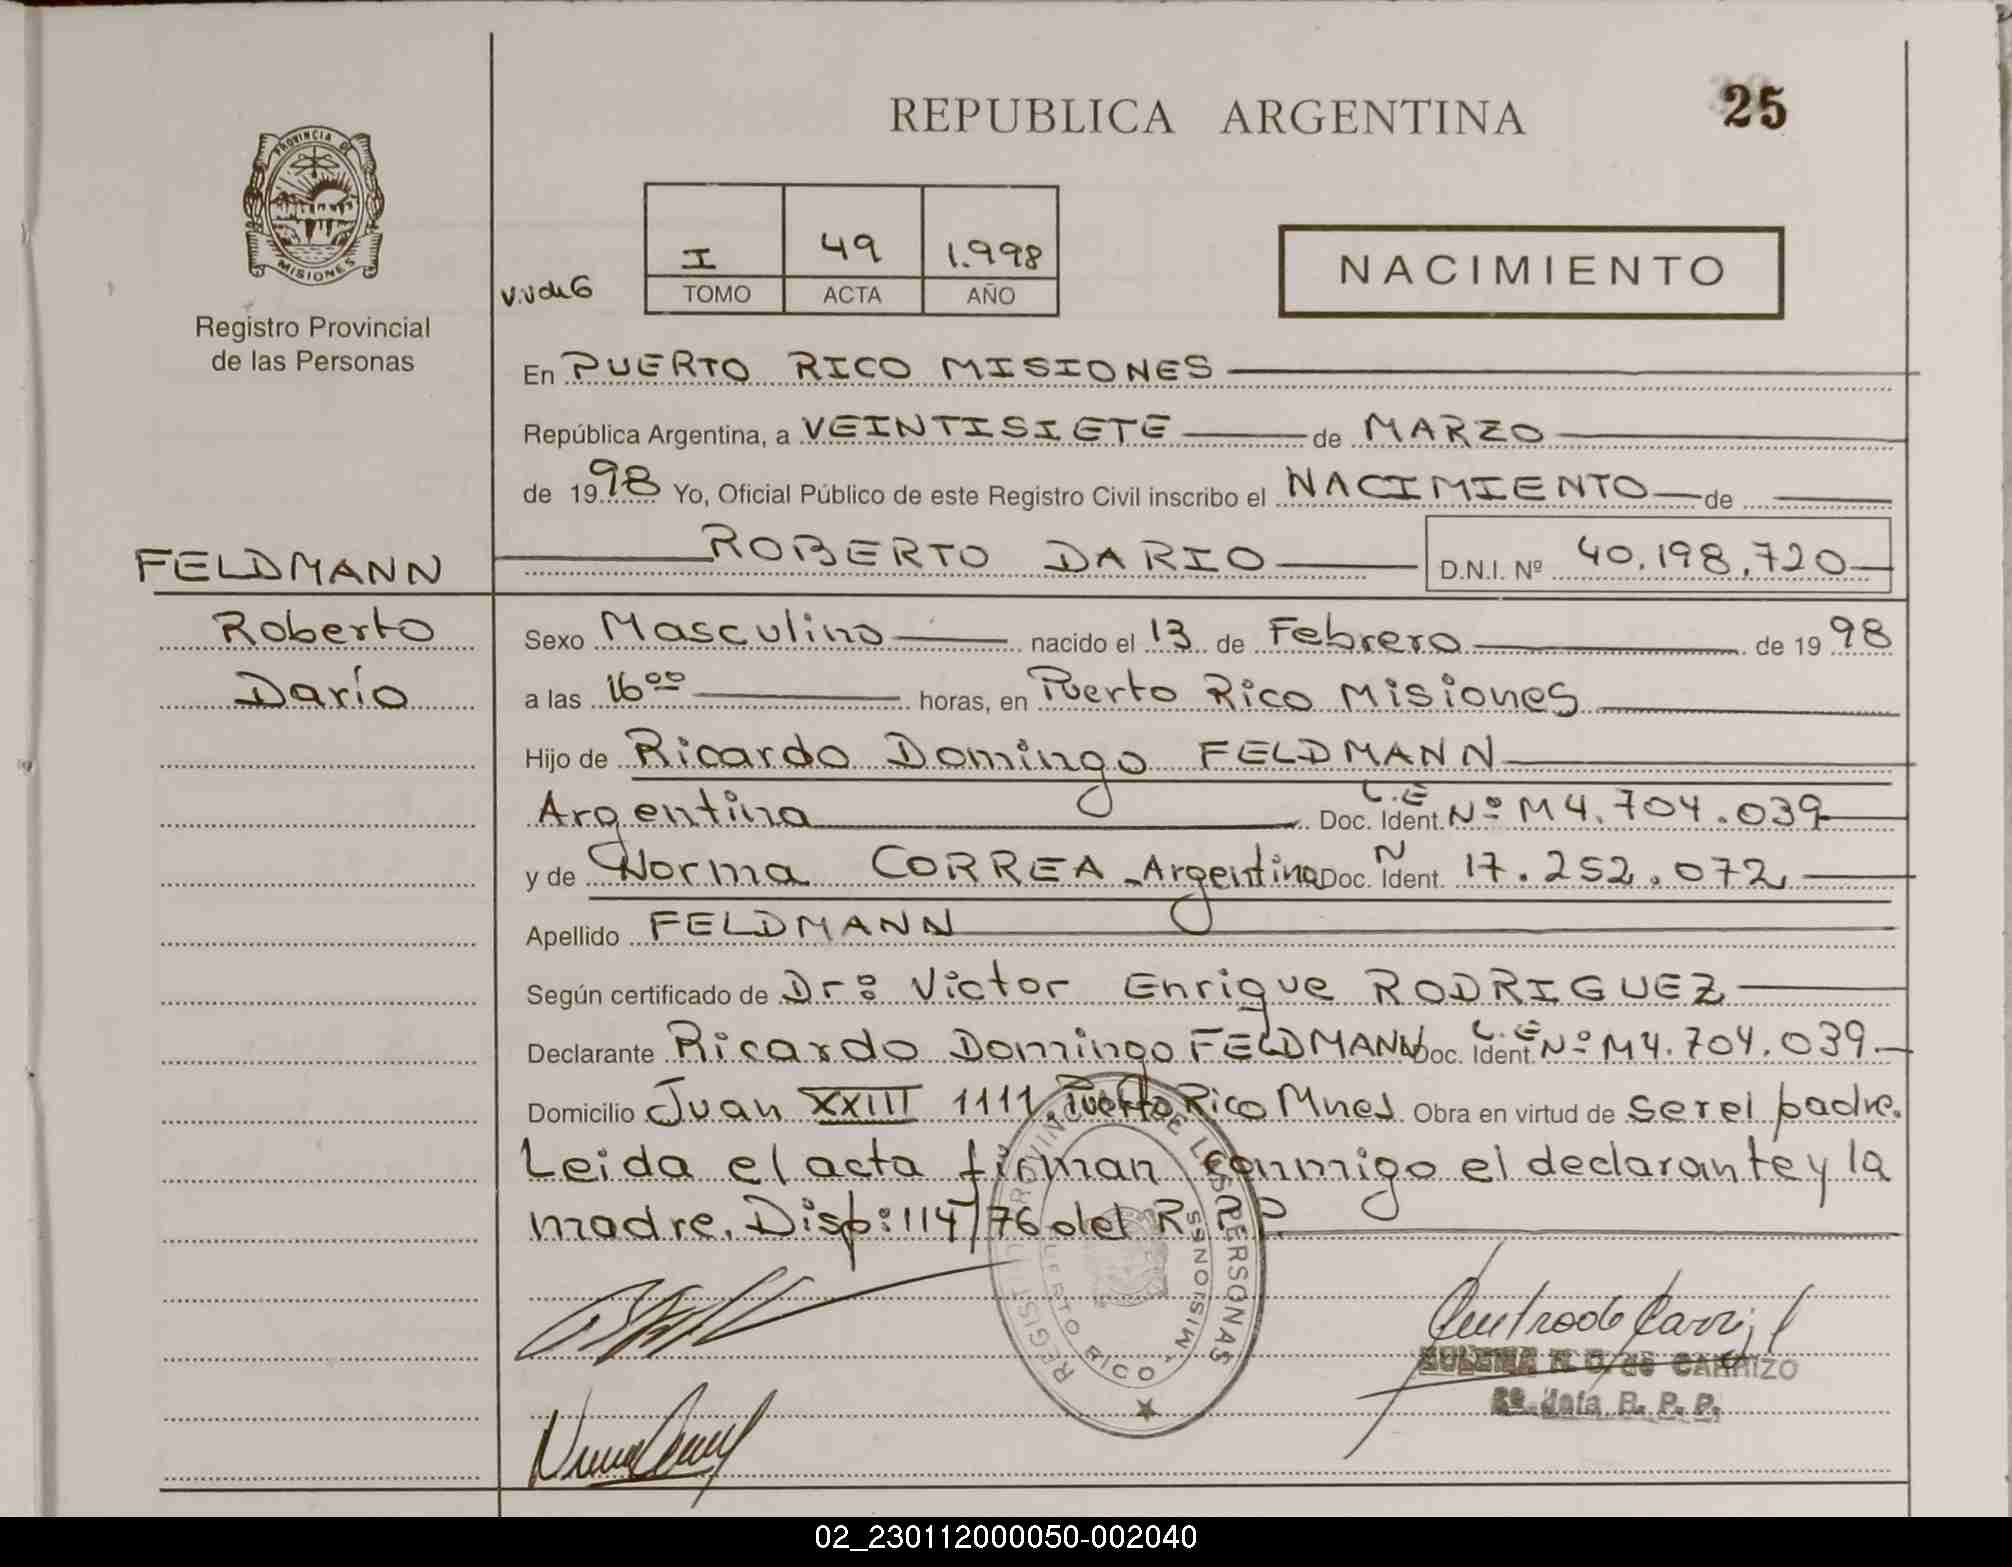 25
REPUBLICA ARGENTINA
PROVINCIA DE
MISIONES
Registro Provincial
de las Personas
I 49 1.998
TOMO ACTA AÑO
NACIMIENTO
En PUERTO RICO MISIONES
República Argentina, a VEINTISIETE de MARZO
de 1998 Yo, Oficial Público de este Registro Civil inscribo el NACIMIENTO de
ROBERTO DARIO D.N.I. Nº 40.198.720
FELDMANN
Roberto
Darío
Sexo Masculino nacido el 13 de Febrero de 1998
a las 16⁰⁰ horas, en Puerto Rico Misiones
Hijo de Ricardo Domingo FELDMANN
Argentina Doc. Ident. L.E Nº M4.704.039
y de Norma CORREA - Argentina Doc. Ident. N 17.252.072
Apellido FELDMANN
Según certificado de Dr: Victor Enrique RODRIGUEZ
Declarante Ricardo Domingo FELDMANN Doc. Ident. L.E Nº M4.704.039.
Domicilio Juan XXIII 1111. Puerto Rico Mnes. Obra en virtud de ser el padre.
Leida el acta firman conmigo el declarante y la
madre. Disp: 114/76 del R.P.P
REGISTRO PROVINCIAL DE LAS PERSONAS
PUERTO RICO - MISIONES
de CARRIZO
Jefa R. P. P.
02_230112000050-002040